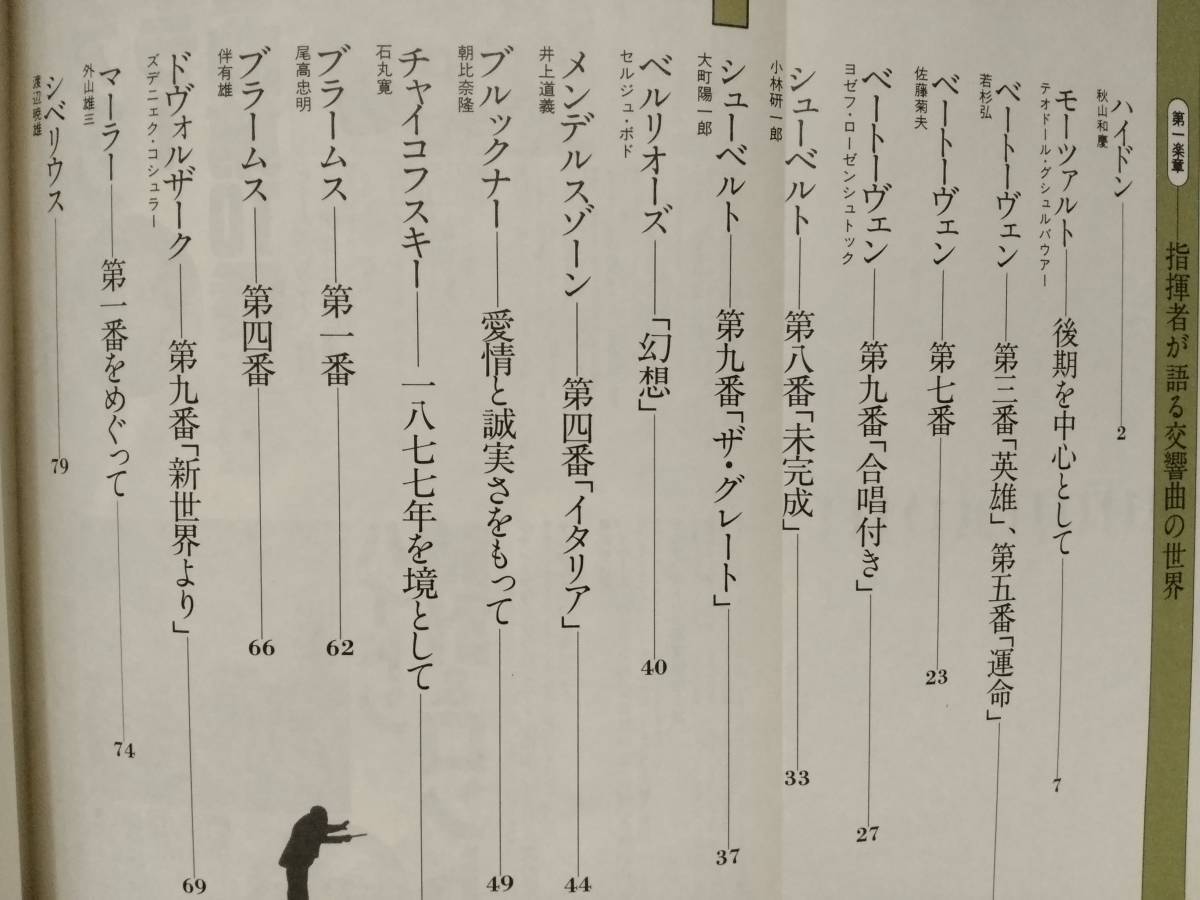 第一楽章
指揮者が語る交響曲の世界
ハイドン 2
秋山和慶
モーツァルト 後期を中心として 7
テオドール・グシュルバウアー
ベートーヴェン 第三番「英雄」、第五番「運命」
若杉弘
ベートーヴェン 第七番 23
佐藤菊夫
ベートーヴェン 第九番「合唱付き」 27
ヨゼフ・ローゼンシュトック
シューベルト 第八番「未完成」 33
小林研一郎
シューベルト 第九番「ザ・グレート」 37
大町陽一郎
ベルリオーズ 「幻想」 40
セルジュ・ボド
メンデルスゾーン 第四番「イタリア」 44
井上道義
ブルックナー 愛情と誠実さをもって 49
朝比奈隆
チャイコフスキー 一八七七年を境として
石丸寛
ブラームス 第一番 62
尾高忠明
ブラームス 第四番 66
伴有雄
ドヴォルザーク 第九番「新世界より」 69
ズデニェク・コシュラー
マーラー 第一番をめぐって 74
外山雄三
シベリウス 79
渡辺暁雄